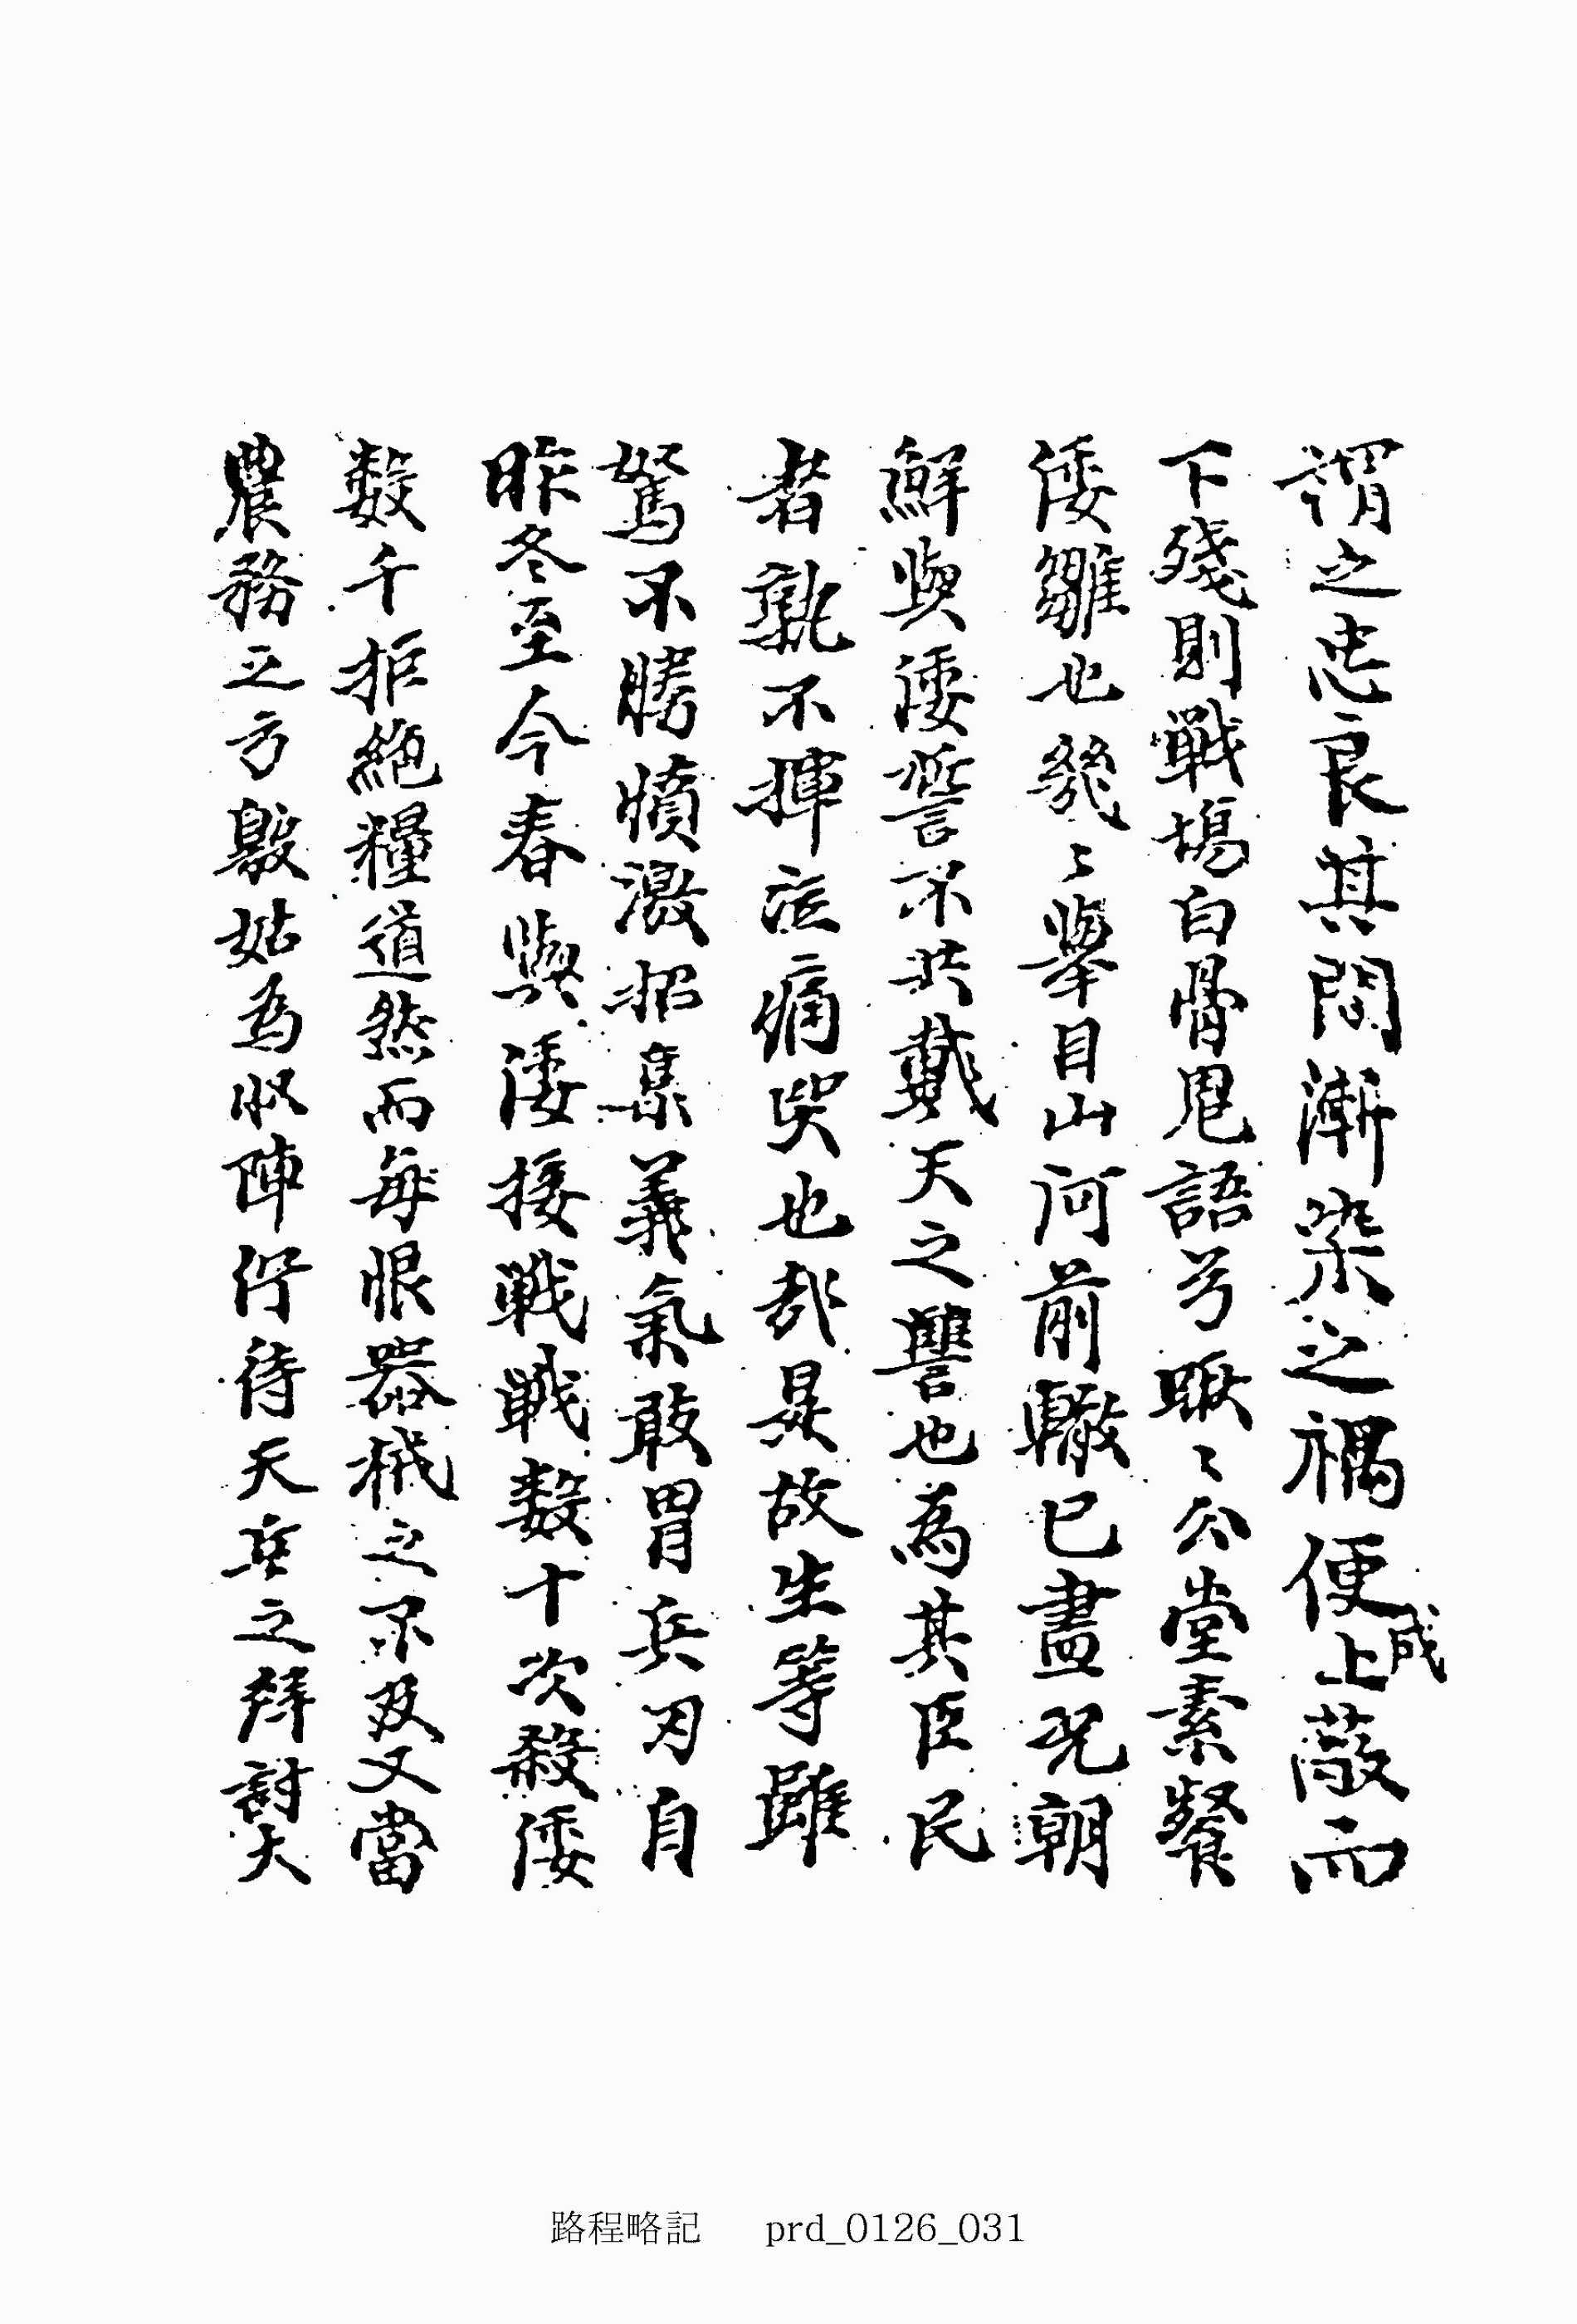 謂之忠良其間漸染之禍便成上蔽而
下殘則戰塲白骨鬼語兮啾〻公堂素餐
倭雛也舉目山河前轍已盡况朝
鮮與倭誓不共戴天之讐也為其臣民
者孰不揮泣痛哭也哉是故生等雖
駑不勝憤激招集義氣敢冒兵刃自
昨冬至今春與倭接戰戰數十次殺倭
數千拒絶糧道然而每恨器械之不及又當
農務之方殷姑為收陣佇待天兵之拜討大
路程略記 prd_0126_031